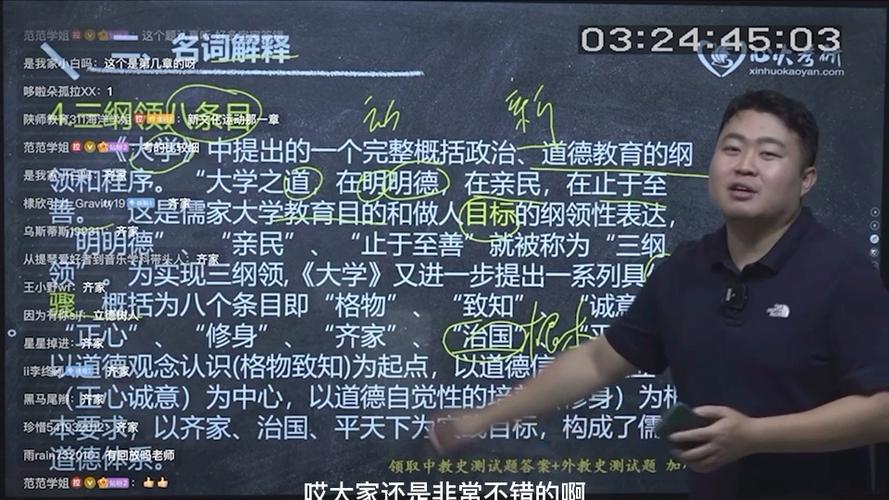 范范学姐
二、名词解释
03:24:45:03
心火考研
xinhuokaoyan.com
是我家小白吗：这个是第几章的呀
哆啦朵孤拉XX：1
4.三纲领八条目
动
新
新文化运动那一章
范范学姐
考的比较细
《大学》中提出的一个完整概括政治、道德教育的纲
领和程序。“大学之道，在明明德，在亲民，在止于至
善。”这是儒家大学教育目的和做人目标的纲领性表达，
“明明德”、“亲民”、“止于至善”就被称为“三纲
领”。为实现三纲领，《大学》又进一步提出一系列具
骤
概括为八个条目即“格物”、“致知”、“诚意
“正心”、“修身”、“齐家”、“治国”
以道德观念认识(格物致知)为起点，以道德信
（正心诚意）为中心，以道德自觉性的培
修身）为根
本要求，以齐家、治国、平天下为实践目标，构成了儒
道德体系。
齐家
Gravity19
齐家
乌斯蒂斯
齐家
从提琴爱好者到音乐学科带头人：齐家
王小野
齐家
因为有你elf：立德树人
星星掉进：齐家
ii李终
齐家
黑马尾辫：齐家
珍惜
齐家
雨rain7320
有回放码老师
范范学姐
领取中教史测试题答案+外教史测试题 加
哎大家还是非常不错的啊